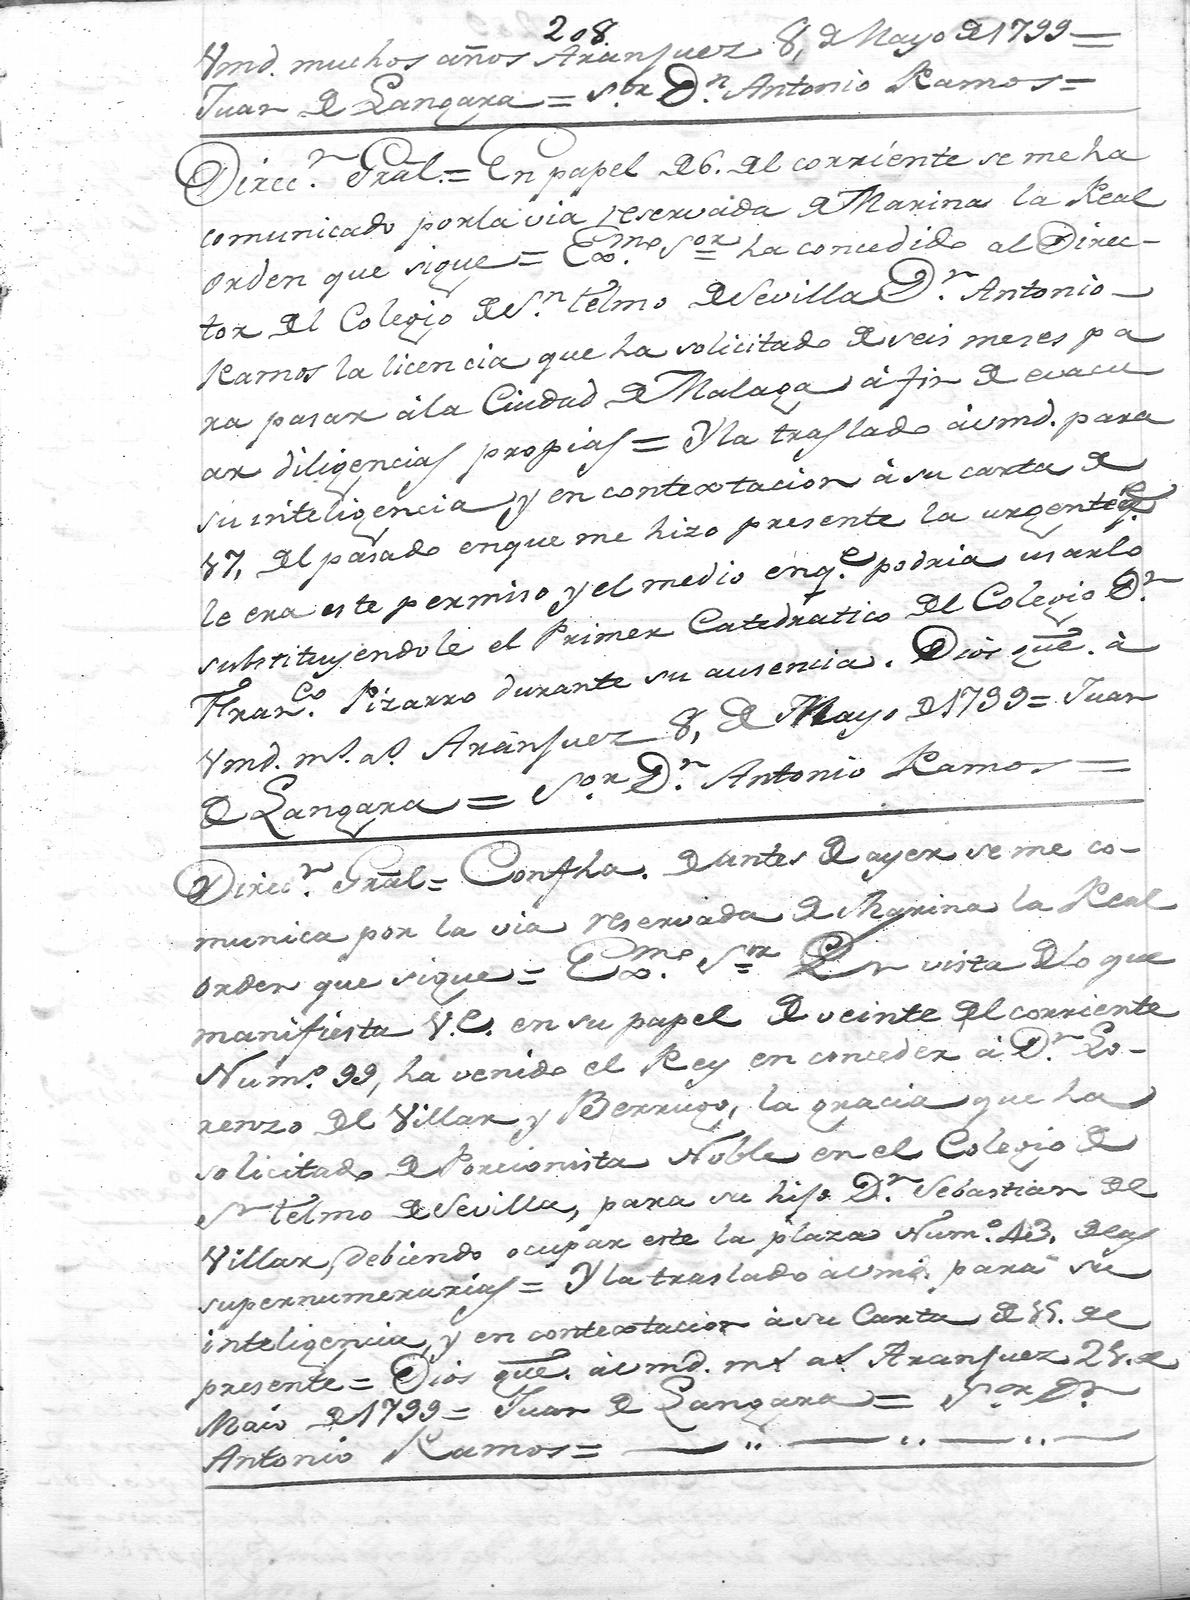 208
Vmd. muchos años Aranjuez 8, de Mayo de 1799 =
Juan de Langara = Sor. Dn. Antonio Ramos =
Direcr. Gral. = En papel de 6. del corriente se me ha
comunicado por la via reservada de Marina la Real
orden que sigue = Exmo. Sor ha concedido al Direc-
tor del Colegio de Sn. Telmo de Sevilla Dn. Antonio
Ramos la licencia que ha solicitado de seis meses pa
ra pasar á la Ciudad de Malaga á fin de evacu
ar diligencias propias = Y la traslado á vmd. para
su inteligencia y en contextacion á su carta de
17, del pasado en que me hizo presente la urgente qe.
le era este permiso y el medio en qe. podria usarlo
substituyendole el Primer Catedratico del Colegio Dn.
Franco. Pizarro durante su ausencia. Dios gue. á
Vmd. ms. as. Aranjuez 8, de Mayo de 1799 = Juan
de Langara = Sor. Dn. Antonio Ramos =
Direcr. Gral = Con fha. de antes de ayer se me co-
munica por la via reservada de Marina la Real
orden que sigue = Exmo. Sor En vista de lo que
manifiesta V.E. en su papel de veinte del corriente
Numo. 99, ha venido el Rey en conceder á Dn. Lo-
renzo del Villar y Berrugo, la gracia que ha
solicitado de Porcionista Noble en el Colegio de
Sn Telmo de Sevilla, para su hijo Dn. Sebastian del
Villar, debiendo ocupar este la plaza Numo. 43. de las
supernumerarias = Y la traslado á vmd. para su
inteligencia, y en contextacion á su Carta de 15. de
presente = Dios gue. á vmd. ms as. Aranjuez 28. de
Maio de 1799 = Juan de Langara = Sor. Dn.
Antonio Ramos =